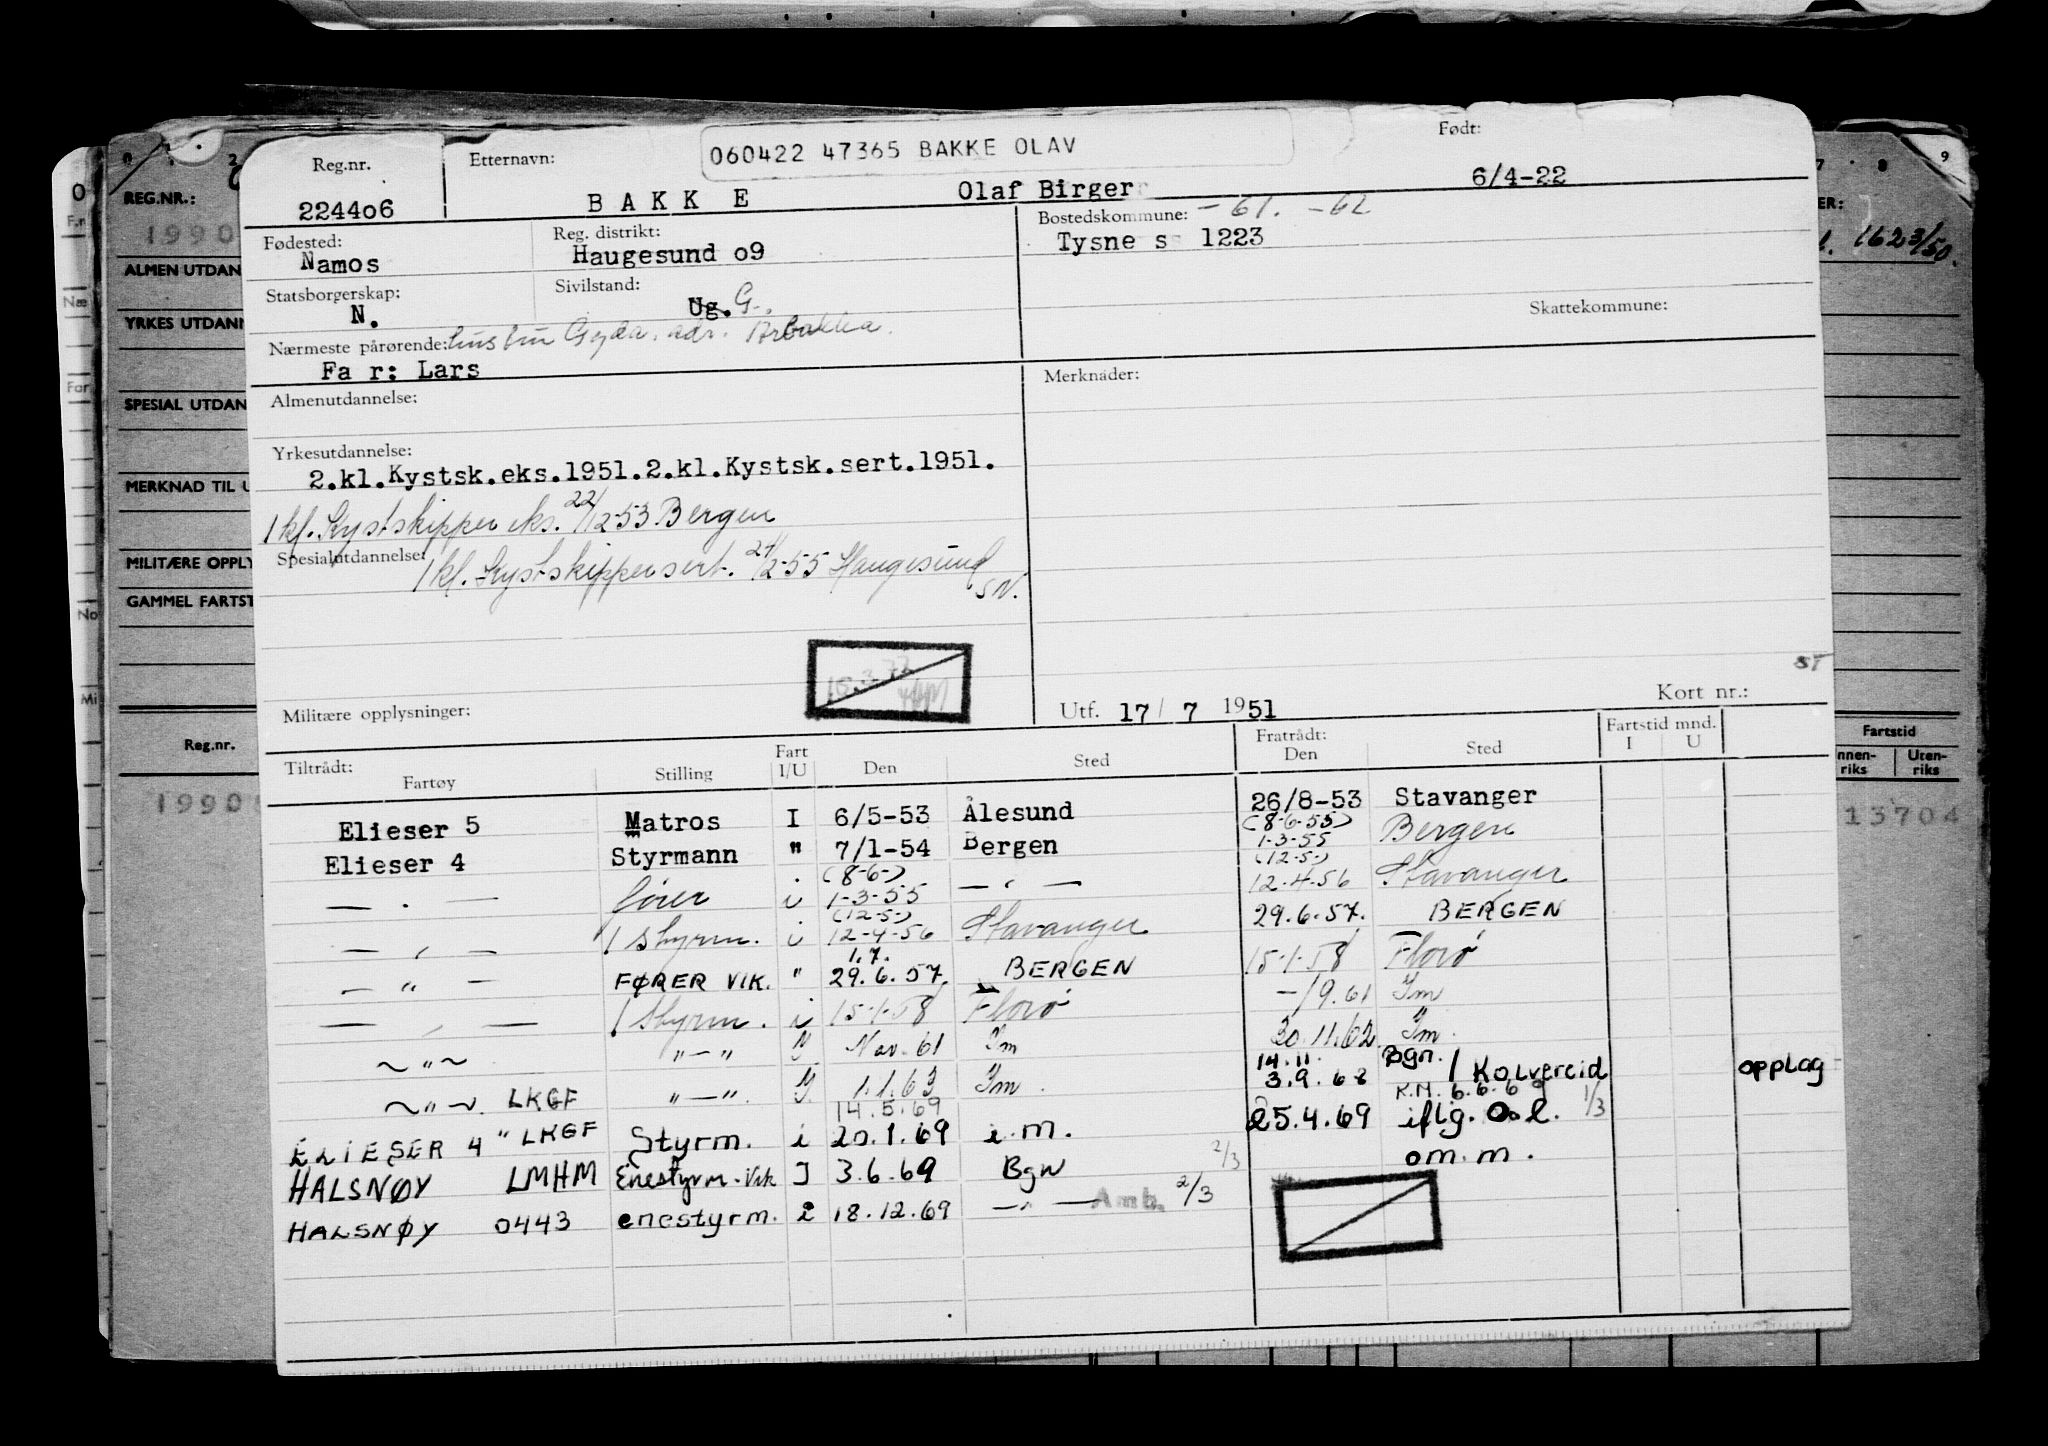 060422 47365 BAKKE OLAV
Reg.nr. Etternavn: Født:
2244o6 BAKKE Olaf Birger 6/4-22
Fødested: Reg. distrikt: Bostedskommune: -61. -62
Namos Haugesund o9 Tysnes 1223
Statsborgerskap: Sivilstand: Skattekommune:
N. Ug. G.
Nærmeste pårørende: hustru Gyda. adr. Årbakka.
Fa r: Lars
Almenutdannelse: Merknader:
Yrkesutdannelse:
2.kl.Kystsk.eks.1951.2.kl.Kystsk.sert.1951.
1 kl. Kystskipper eks. 22/12-53 Bergen
Spesialutdannelse: 1 kl. Kystskippersert. 21/2-55 Haugesund
SN.
ST
Militære opplysninger: Utf. 17/ 7 1951 Kort nr.:
Tiltrådt: Fratrådt: Fartstid mnd.
Fartøy Stilling Fart I/U Den Sted Den Sted I U
Elieser 5 Matros I 6/5-53 Ålesund 26/8-53 Stavanger
Elieser 4 Styrmann " 7/1-54 Bergen (8-6-55) 1-3-55 Bergen
— . — fører i (8-6-) 1-3-55 — " — (12-5-) 12.4.56 Stavanger
— , — 1 styrm. i (12-5-) 12-4-56 Stavanger 29.6.57. BERGEN
— " — FØRER VIK. " 1.7. 29.6.57. BERGEN 15-1-58 Florø
— , — 1 styrm. i 15-1-58 Florø -/9.61 Im
~ " ~ " — " Y Nov. 61 Im 30.11.62 Im.
~ " ~. LKGF " — ". Y. 1.1.63 Im. 14.11. 3.9.68 Bgn. / Kolvereid opplag
ELIESER 4 " LKGF Styrm. i 14.5.69 20.1.69 i.m. 25.4.69 R.M. 6.6.69 iflg. O.l. 1/3
HALSNØY LMHM Enestyrm. Vik I 3.6.69 Bgn 2/3 om.m.
HALSNØY 0443 enestyrm. i 18.12.69 — " — Amb. 2/3
REG.NR.:
1990
ALMEN UTDAN
YRKES UTDANN
SPESIAL UTDAN
MERKNAD TIL U
MILITÆRE OPPLY
GAMMEL FARTST
Reg.nr.
1990
ER:
1623/50.
Fartstid
nnen-riks Uten-riks
13704